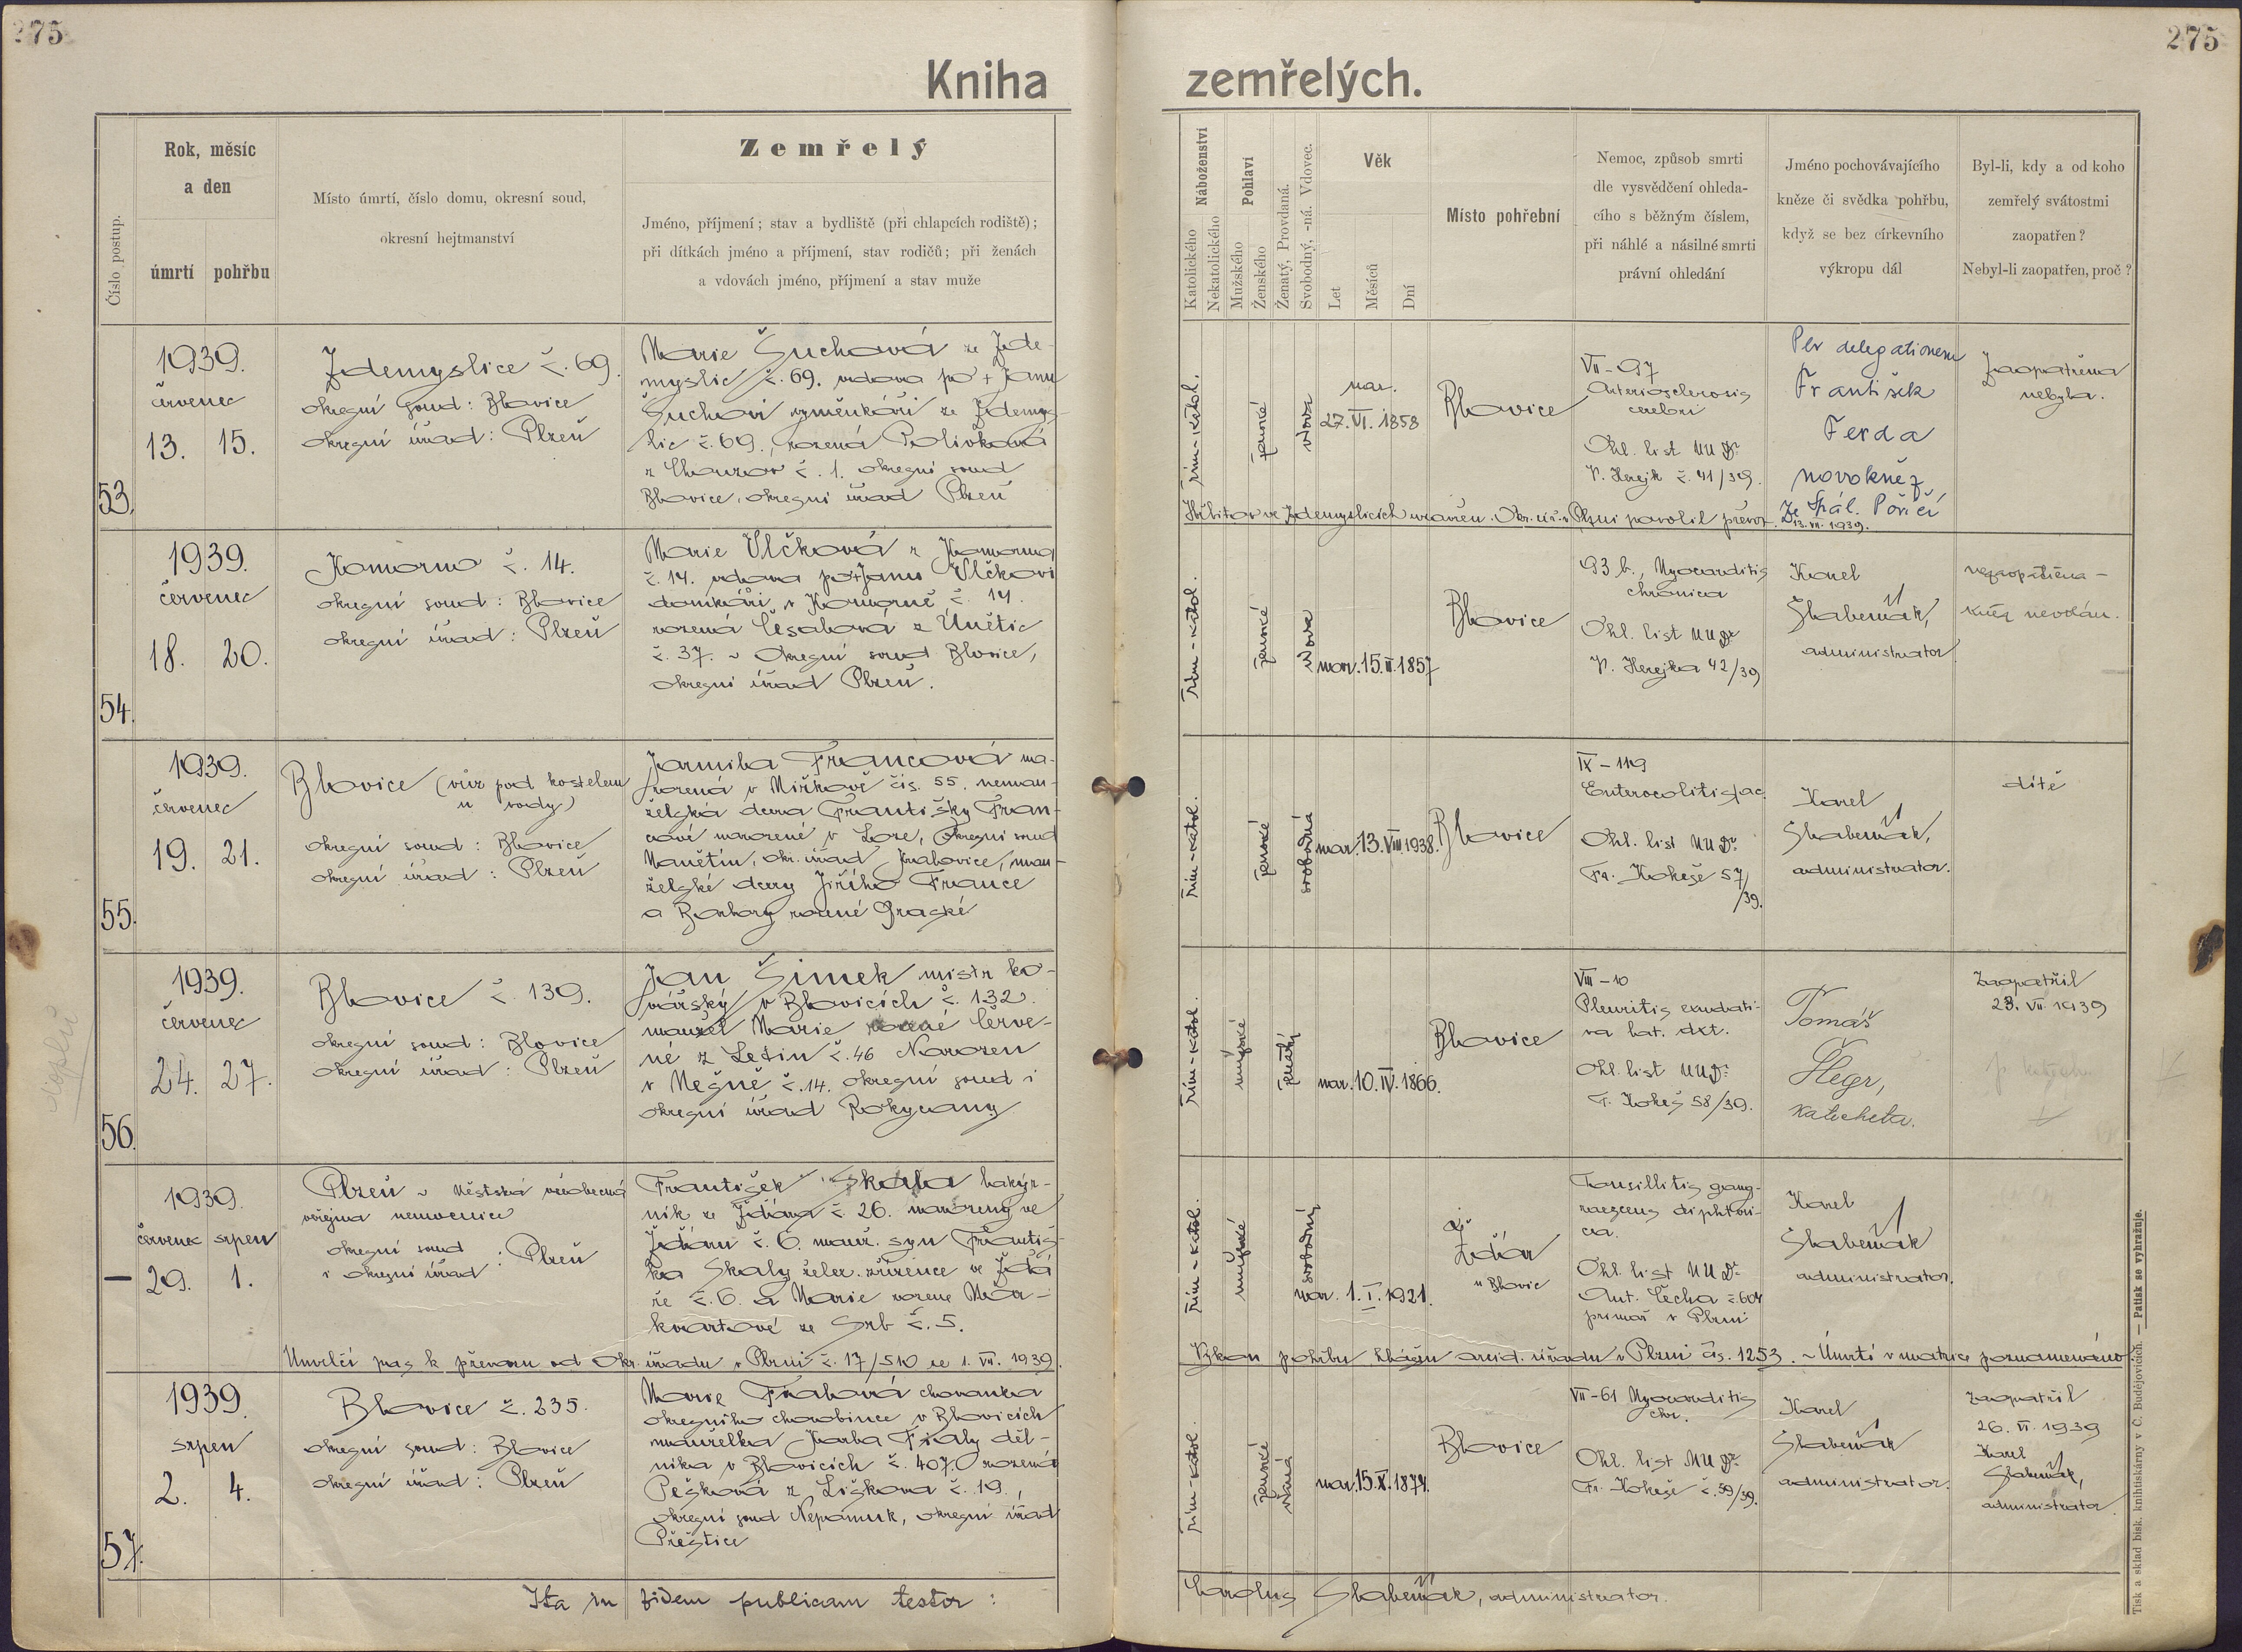 275
275
Kniha
zemřelých.
Číslo postup.
Rok, měsíc
a den
úmrtí
pohřbu
Místo úmrtí, číslo domu, okresní soud,
okresní hejtmanství
Zemřelý
Jméno, příjmení; stav a bydliště (při chlapcích rodiště);
při dítkách jméno a příjmení, stav rodičů; při ženách
a vdovách jméno, příjmení a stav muže
Náboženství
Katolického
Nekatolického
Pohlaví
Mužského
Ženského
Ženatý, Provdaná.
Svobodný, -ná. Vdovec.
Věk
Let
Měsíců
Dní
Místo pohřební
Nemoc, způsob smrti
dle vysvědčení ohleda-
cího s běžným číslem,
při náhlé a násilné smrti
právní ohledání
Jméno pochovávajícího
kněze či svědka pohřbu,
když se bez církevního
výkropu dál
Byl-li, kdy a od koho
zemřelý svátostmi
zaopatřen?
Nebyl-li zaopatřen, proč?
53.
1939.
červenec
13. 15.
Ždemyslice č. 69.
okresní soud: Blovice
okresní úřad: Plzeň
Marie Šuchová ze Žde-
myslic č. 69. vdova po + Janu
Šuchovi výměnkáři ze Ždemys-
lic č. 69., rozená Polívková
z Chouzov č. 1. okresní soud
Blovice, okresní úřad Plzeň
řím-katol.
ženské
vdova
nar.
27. VI. 1858
Blovice
VII-97
Arteriosclerosis
cerebri
Ohl. list MUDr
V. Herejk č. 41/39.
Per delegationem
František
Ferda
novokněz
Ze Spál. Poříčí
Zaopatřena
nebyla.
Hřbitov ve Ždemyslicích uzavřen. Okr. úř. v Plzni povolil převoz. 13. VII. 1939.
54.
1939.
červenec
18. 20.
Komorno č. 14.
okresní soud: Blovice
okresní úřad: Plzeň
Marie Vlčková z Komorna
č. 14. vdova po + Janu Vlčkovi
domkáři v Komorně č. 14.
rozená Česalová z Únětic
č. 37. - okresní soud Blovice,
okresní úřad Plzeň.
řím-katol.
ženské
vdova
nar. 15. II. 1857
Blovice
93 b., Myocarditis
chronica
Ohl. list MUDr
V. Herejka 42/39
Karel
Slabeňák,
administrator.
nezaopatřena -
kněz nevolán.
55.
1939.
červenec
19. 21.
Blovice (vůz pod kostelem
u vody)
okresní soud: Blovice
okresní úřad: Plzeň
Jarmila Francová na-
rozená v Mířkově čis. 55. neman-
želská dcera Františky Fran-
cové narozené v Loze, okresní soud
Manětín, okr. úřad Kralovice, man-
želské dcery Jiřího France
a Barbory rozené
řím-katol.
ženské
svobodná
nar. 13. VIII 1938.
Blovice
IX - 119
Enterocolitis ac.
Ohl. list MUDr
Fr. Kokeše 57/39.
Karel
Slabeňák,
administrator.
dítě
56.
1939.
červenec
24. 27.
Blovice č. 139.
okresní soud: Blovice
okresní úřad: Plzeň
Jan Šimek mistr ko-
vářský v Blovicích č. 132.
manžel Marie rozené Červe-
né z Letin č. 46 Narozen
v Mešně č. 14. okresní soud i
okresní úřad Rokycany
řím-katol.
mužské
ženatý
nar. 10. IV. 1866.
Blovice
VIII - 10
Pleuritis exudati-
va lat. dxt.
Ohl. list MUDr
F. Kokeš 58/39.
Tomáš
Šlegr,
katecheta.
Zaopatřil
23. VII. 1939
—
1939.
červenec srpen
29. 1.
Plzeň - Městská všeobecná
veřejná nemocnice
okresní soud
i okresní úřad : Plzeň
František Skala
ník ze Ždíru č. 26. narozený ve
Ždíru č. 6. manž. syn Františ-
ka Skaly želez. zřízence ve Ždí-
ře č. 6. a Marie rozené Mar-
kvartové ze Srb č. 5.
řím-katol.
mužské
svobodný
nar. 1. I. 1921.
Ždír
u Blovic
Tonsillitis gang-
raescens diphteri-
ca.
Ohl. list MUDr
Ant. Čecha č. 604
primář v Plzni
Karel
Slabeňák
administrator.
Umrlčí pas k převozu od Okr. úřadu v Plzni č. 17/510 ze 1. VII. 1939.
Výkon pohřbu hlášen arcid. úřadu v Plzni čís. 1253. - Úmrtí v matrice poznamenáno.
57.
1939
srpen
2. 4.
Blovice č. 235.
okresní soud: Blovice
okresní úřad: Plzeň
Marie Fialová chovanka
okresního chorobince v Blovicích
manželka Karla Fialy děl-
níka v Blovicích č. 407. rozená
Pešková z Liškova č. 19.,
okresní soud Nepomuk, okresní úřad
Přeštice
řím-katol.
ženské
vdaná
nar. 15. X. 1874.
Blovice
VII - 61 Myocarditis
chr.
Ohl. list MUDr
Fr. Kokeše č. 59/39.
Karel
Slabeňák
administrator.
Zaopatřil
26. VI. 1939
Karel
Slabeňák,
administrator.
Ita in fidem publicam testor:
Carolus Slabeňák, administrator.
Tisk a sklad bisk. knihtiskárny v Č. Budějovicích. — Patisk se vyhražuje.